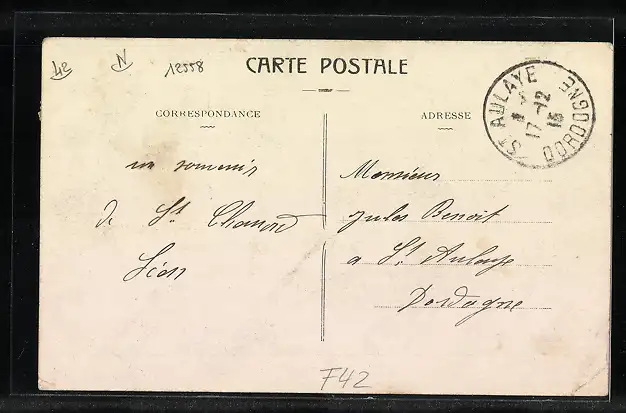 42 N 12558
CARTE POSTALE
CORRESPONDANCE
ADRESSE
ST AULAYE DORDOGNE
17 -12
15
un souvenir
de St Chamond
Léon
Monsieur
Jules Benoit
a St Aulaye
Dordogne
F42